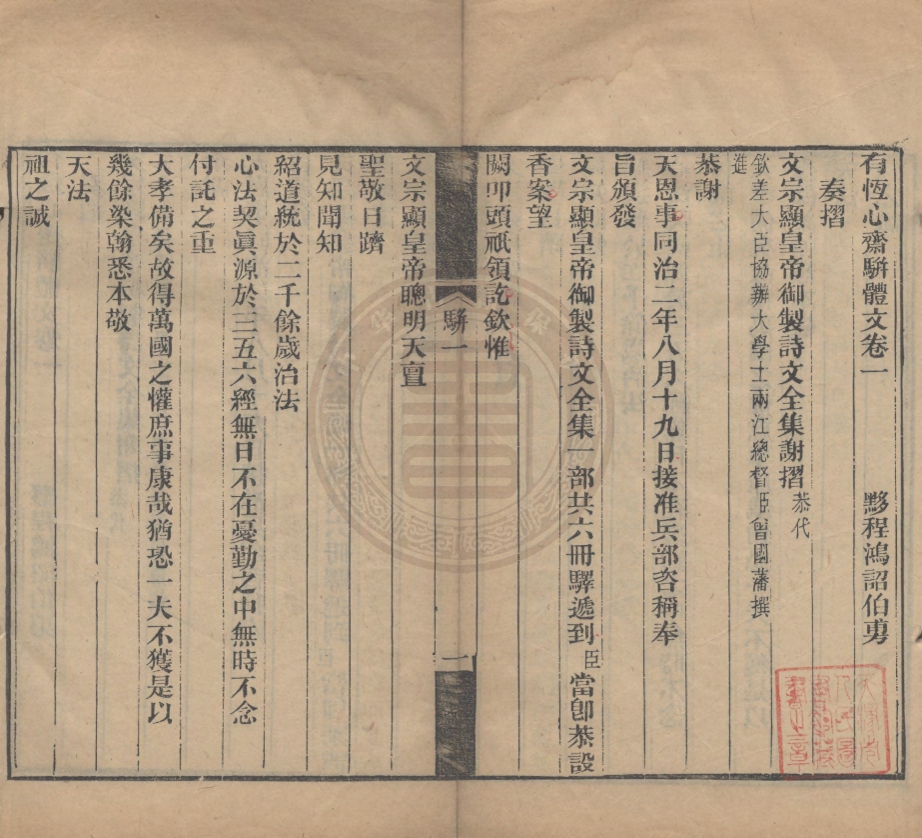 有恆心齋駢體文卷一　黟程鴻詔伯旉
奏摺
文宗顯皇帝御製詩文全集謝摺恭代
欽差大臣協辦大學士兩江總督臣曾國藩撰
進
恭謝
天恩事同治二年八月十九日接准兵部咨稱奉
旨頒發
文宗顯皇帝御製詩文全集一部共六冊驛遞到臣當卽恭設
香案望
闕叩頭祇領訖欽惟
駢一
一
文宗顯皇帝聰明天亶
聖敬日躋
見知聞知
紹道統於二千餘歲治法
心法契眞源於三五六經無日不在憂勤之中無時不念
付託之重
大孝備矣故得萬國之懽庶事康哉猶恐一夫不獲是以
幾餘染翰悉本敬
天法
祖之誠